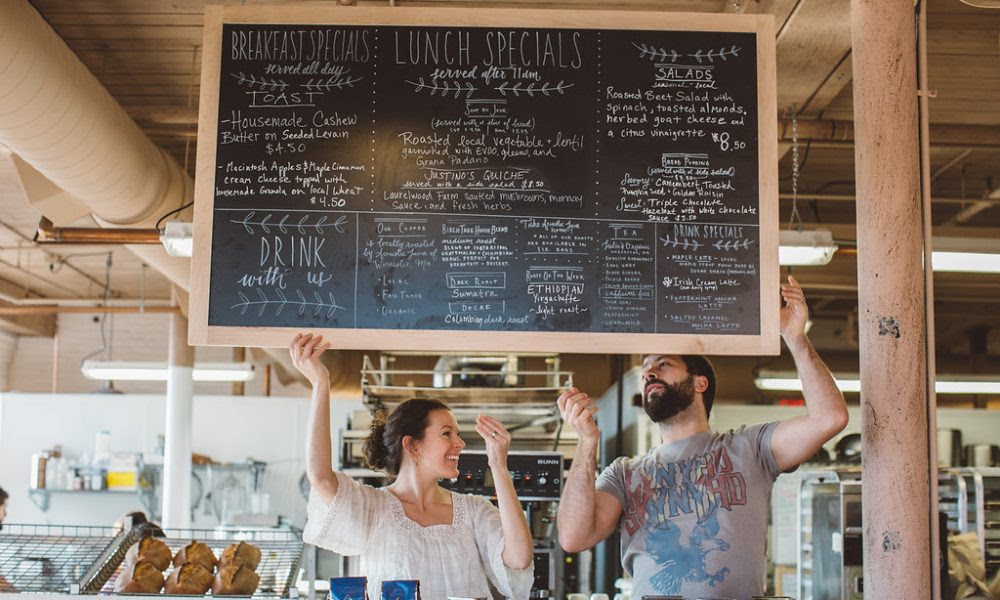 BREAKFAST SPECIALS
served all day
TOAST
- Housemade Cashew
Butter on Seeded Levain
$4.50
- Macintosh Apples & Maple Cinnamon
cream cheese topped with
housemade Granola on local Wheat
$4.50
LUNCH SPECIALS
served after 11am
(served with a slice of bread)
Roasted local vegetable + lentil
garnished with EVOO, greens, and
Grana Padano
JUSTINO'S QUICHE
served with a side salad $8.50
Laurelwood Farm sautéed mushrooms, mornay
Sauce and fresh herbs
SALADS
seasonal + local
Roasted Beet Salad with
spinach, toasted almonds,
herbed goat cheese and
a citrus vinaigrette $8.50
BREAD PUDDING
(served with a side salad)
Savory: Camembert, Toasted
Pumpkin Seed + Golden Raisin
Sweet: Triple Chocolate
Hazelnut with white chocolate
Sauce $5.50
DRINK
with us
Our Coffee
is locally roasted
Worcester, MA
- Local
- Fair Trade
- Organic
BIRCH TREE HOUSE BLEND
medium roast
DARK ROAST
Sumatra
Colombian dark roast
are available in
1 LB. BAGS
ROAST OF THE WEEK
ETHIOPIAN
Yirgacheffe
- light roast ~
TEA
caffeine free
PEPPERMINT
CHAMOMILE
DRINK SPECIALS
- MAPLE LATTE - LOCAL
- Irish Cream Latte
- PEPPERMINT MOCHA
LATTE
- SALTED CARAMEL
MOCHA LATTE
BUNN
LYNYRD
SKYNYRD